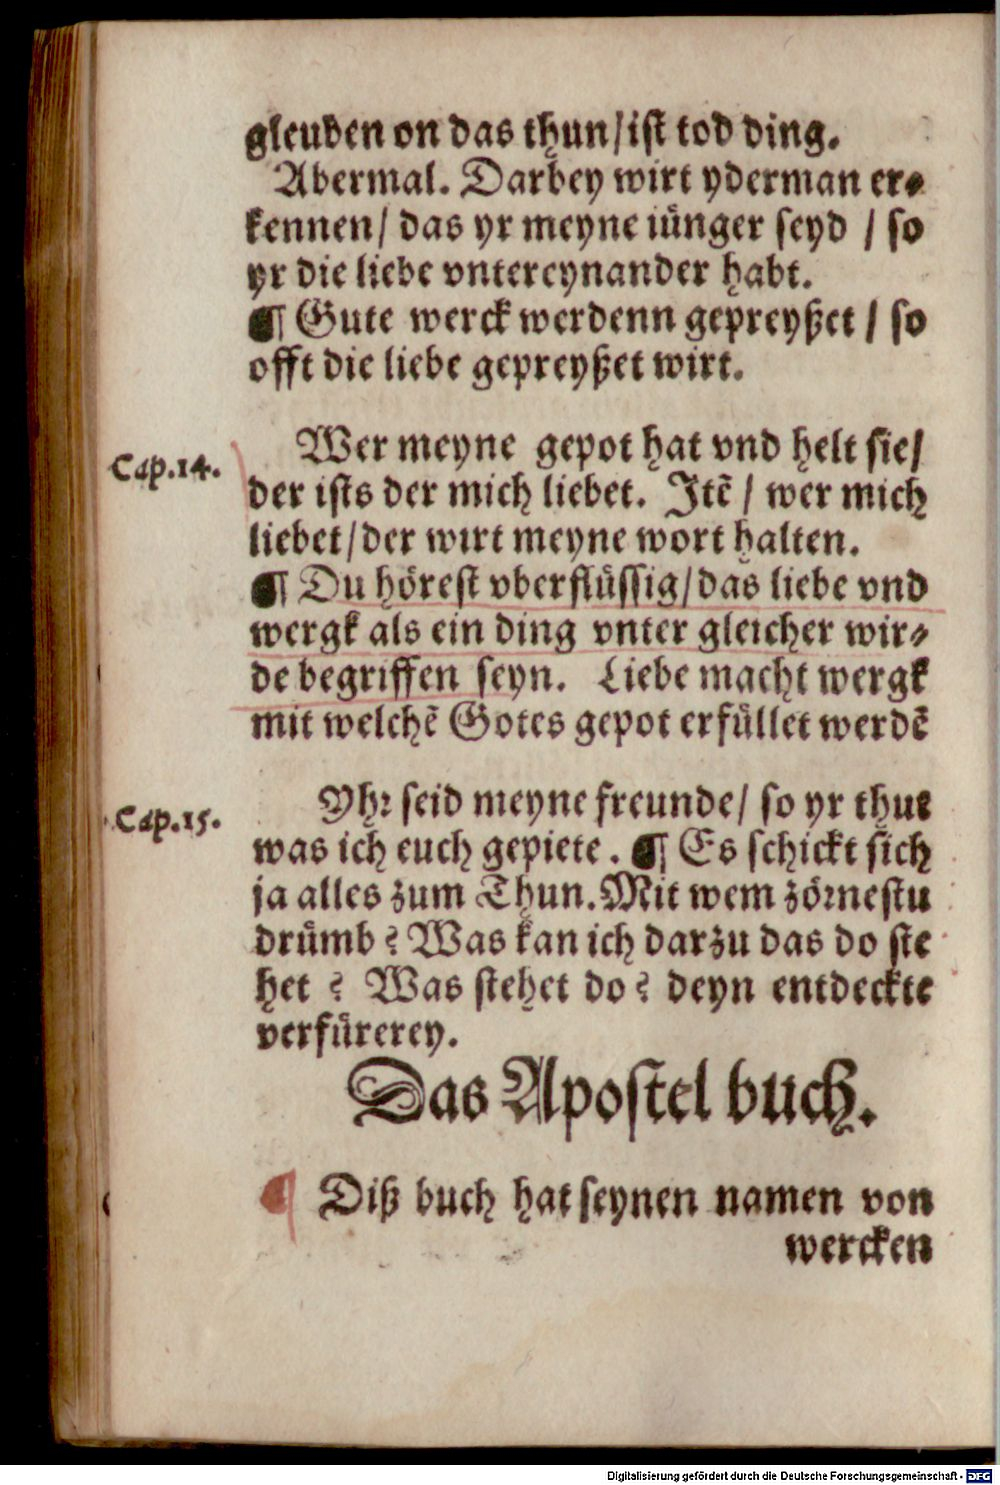 gleuben on das thun/ist tod ding.
Abermal. Darbey wirt yderman er⸗
kennen/ das yr meyne iünger seyd / so
yr die liebe vntereynander habt.
¶ Gute werck werdenn gepreyßet / so
offt die liebe gepreyßet wirt.
Cap.14. Wer meyne gepot hat vnd helt sie/
der ists der mich liebet. Itē / wer mich
liebet/der wirt meyne wort halten.
¶ Du hörest vberflüssig/das liebe vnd
wergk als ein ding vnter gleicher wir⸗
de begriffen seyn. Liebe macht wergk
mit welchē Gotes gepot erfüllet werdē
Cap.15. Yhr seid meyne freunde/ so yr thut
was ich euch gepiete. ¶ Es schickt sich
ja alles zum Thun. Mit wem zörnestu
drümb? Was kan ich darzu das do ste
het ? Was stehet do? deyn entdeckte
verfürerey.
Das Apostel buch.
¶ Diß buch hat seynen namen von
wercken
Digitalisierung gefördert durch die Deutsche Forschungsgemeinschaft - DFG